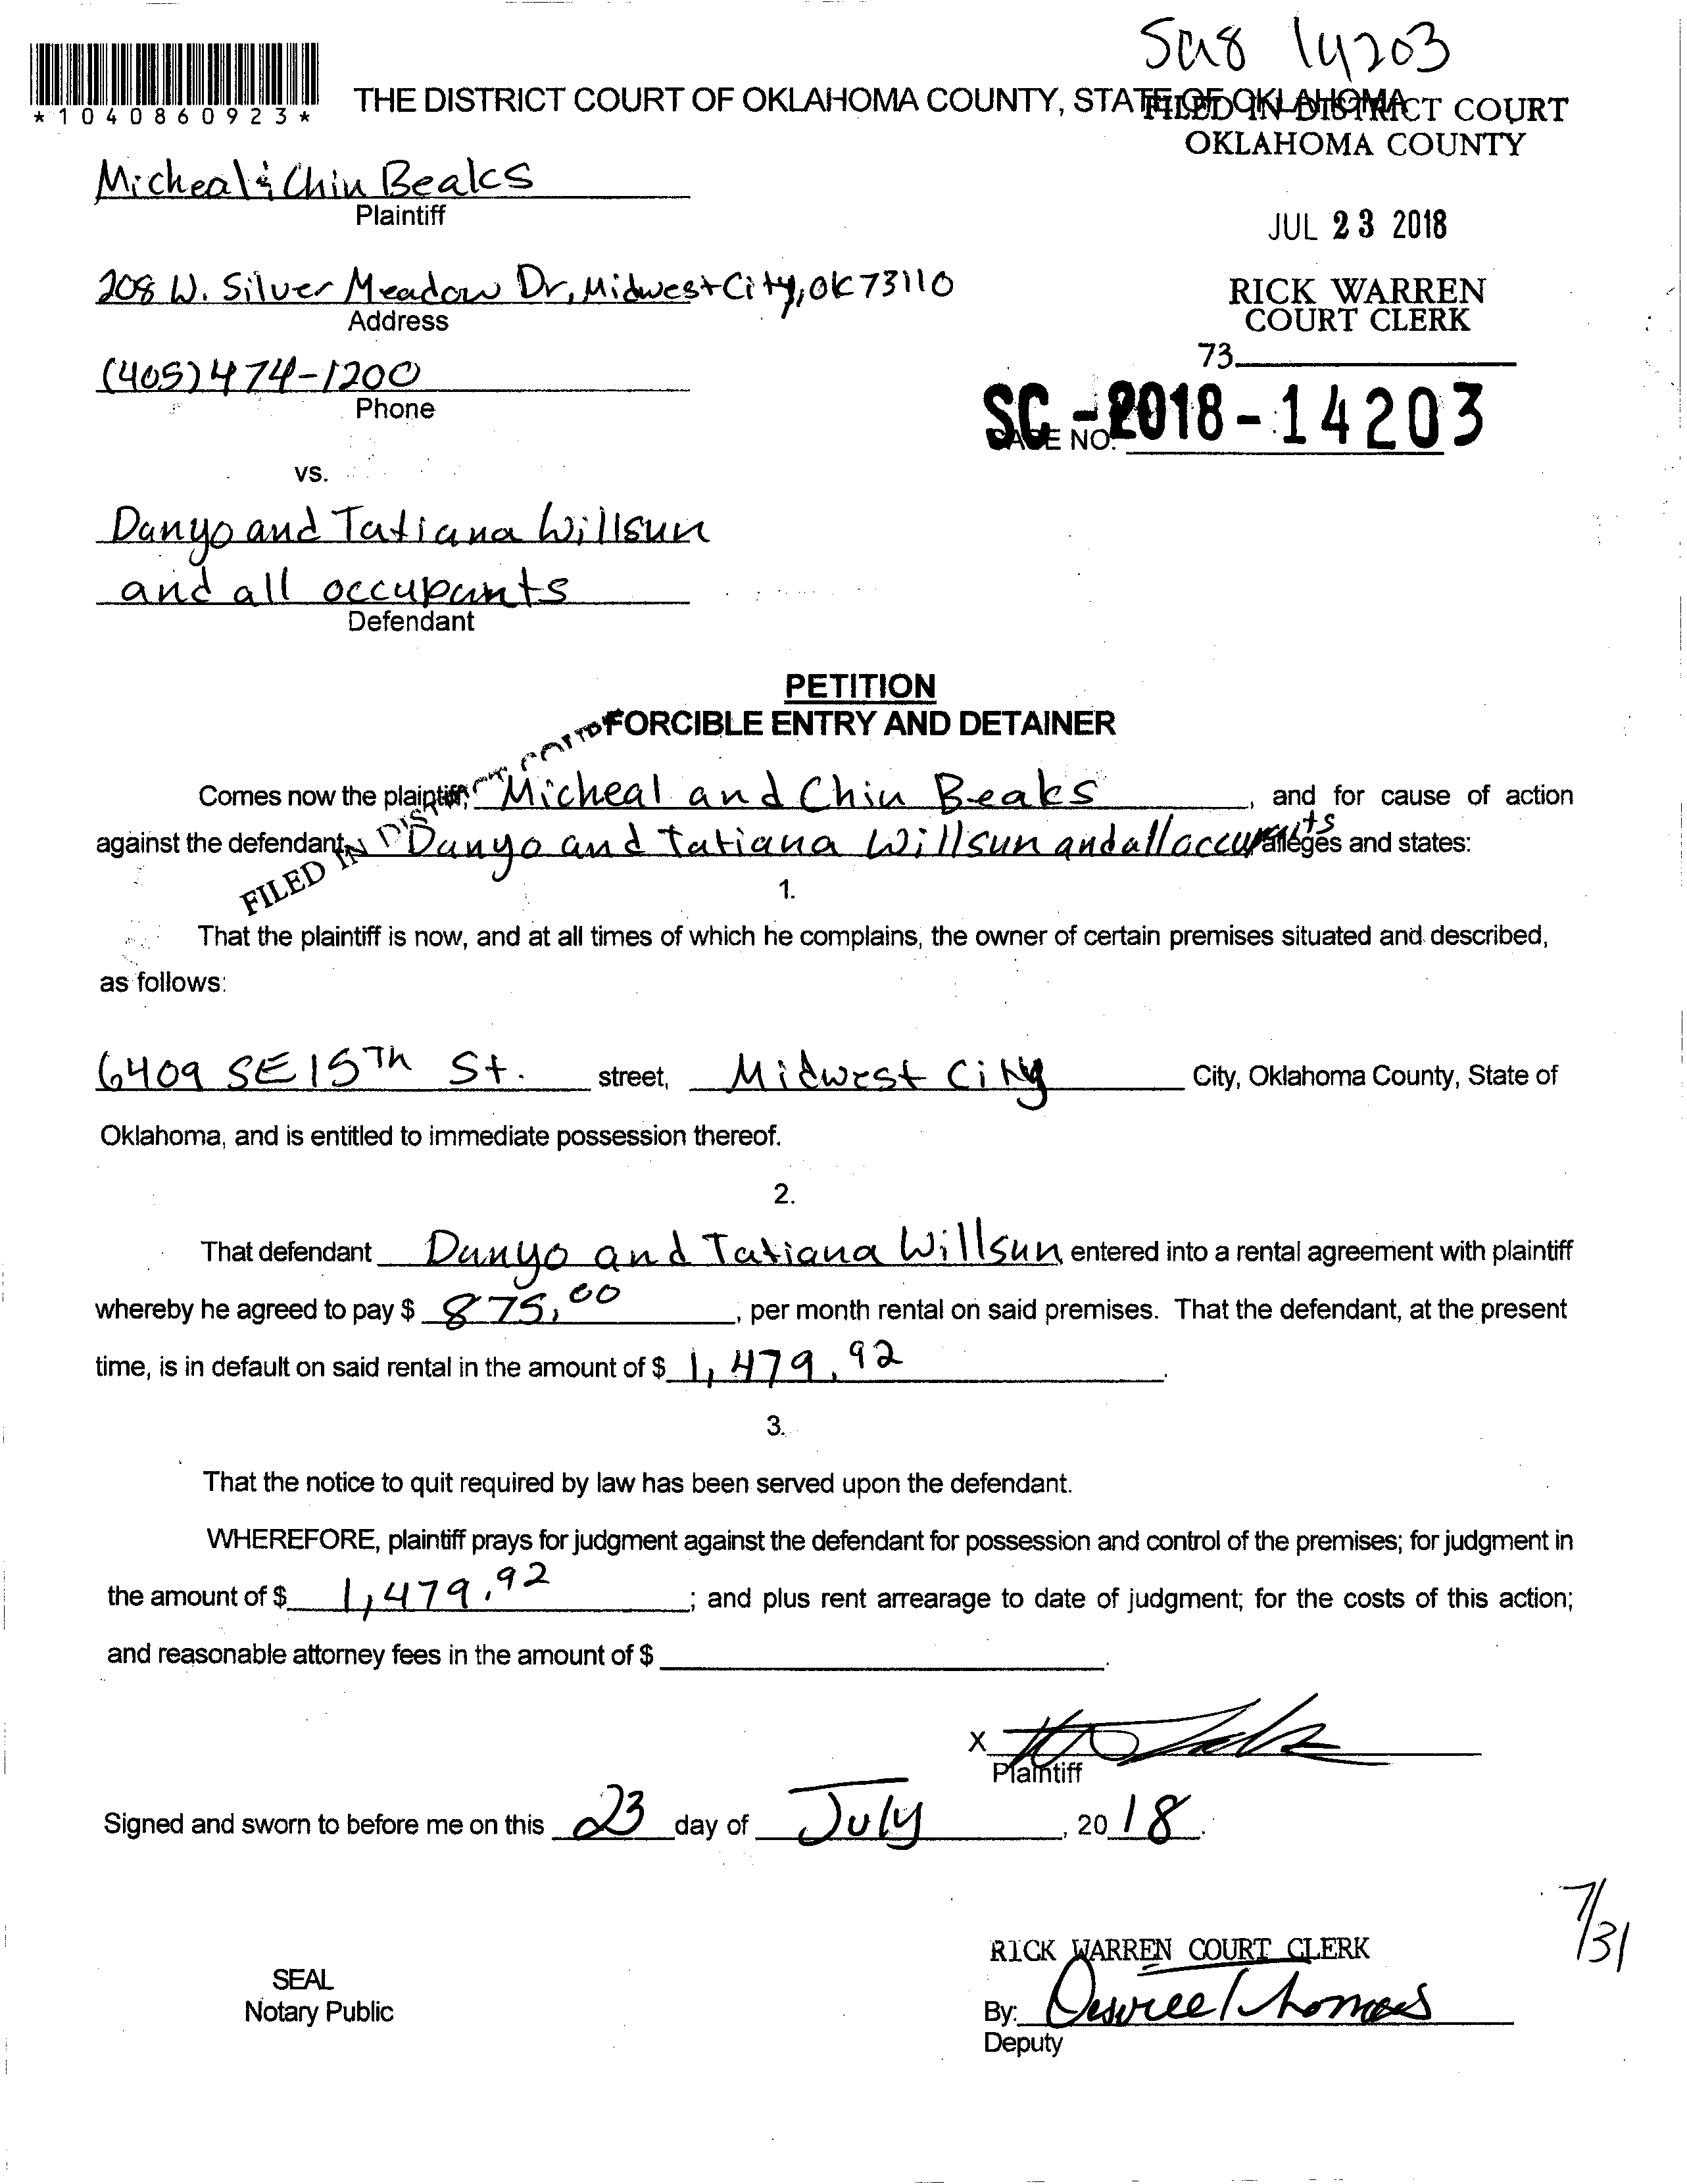 SC18 14203
*1040860923*
THE DISTRICT COURT OF OKLAHOMA COUNTY, STATE OF OKLAHOMA
FILED IN DISTRICT COURT
OKLAHOMA COUNTY
Micheal & Chin Beaks
Plaintiff
JUL 23 2018
208 W. Silver Meadow Dr, Midwest City, OK 73110
Address
RICK WARREN
COURT CLERK
(405) 474-1200
Phone
73
SC-2018-14203
CASE NO.
vs.
Danyo and Tatiana Willsun
and all occupants
Defendant
PETITION
FORCIBLE ENTRY AND DETAINER
Comes now the plaintiff, Micheal and Chin Beaks, and for cause of action
against the defendant, Danyo and Tatiana Willsun and all accupants alleges and states:
FILED IN DISTRICT COURT
1.
That the plaintiff is now, and at all times of which he complains, the owner of certain premises situated and described,
as follows:
6409 SE 15Th St. street, Midwest City City, Oklahoma County, State of
Oklahoma, and is entitled to immediate possession thereof.
2.
That defendant Danyo and Tatiana Willsun entered into a rental agreement with plaintiff
whereby he agreed to pay $ 875.00, per month rental on said premises. That the defendant, at the present
time, is in default on said rental in the amount of $ 1,479.92.
3.
That the notice to quit required by law has been served upon the defendant.
WHEREFORE, plaintiff prays for judgment against the defendant for possession and control of the premises; for judgment in
the amount of $ 1,479.92; and plus rent arrearage to date of judgment; for the costs of this action;
and reasonable attorney fees in the amount of $ .
X
Plaintiff
Signed and sworn to before me on this 23 day of July, 2018.
7/31
RICK WARREN COURT CLERK
SEAL
Notary Public
By: Desiree Thomas
Deputy